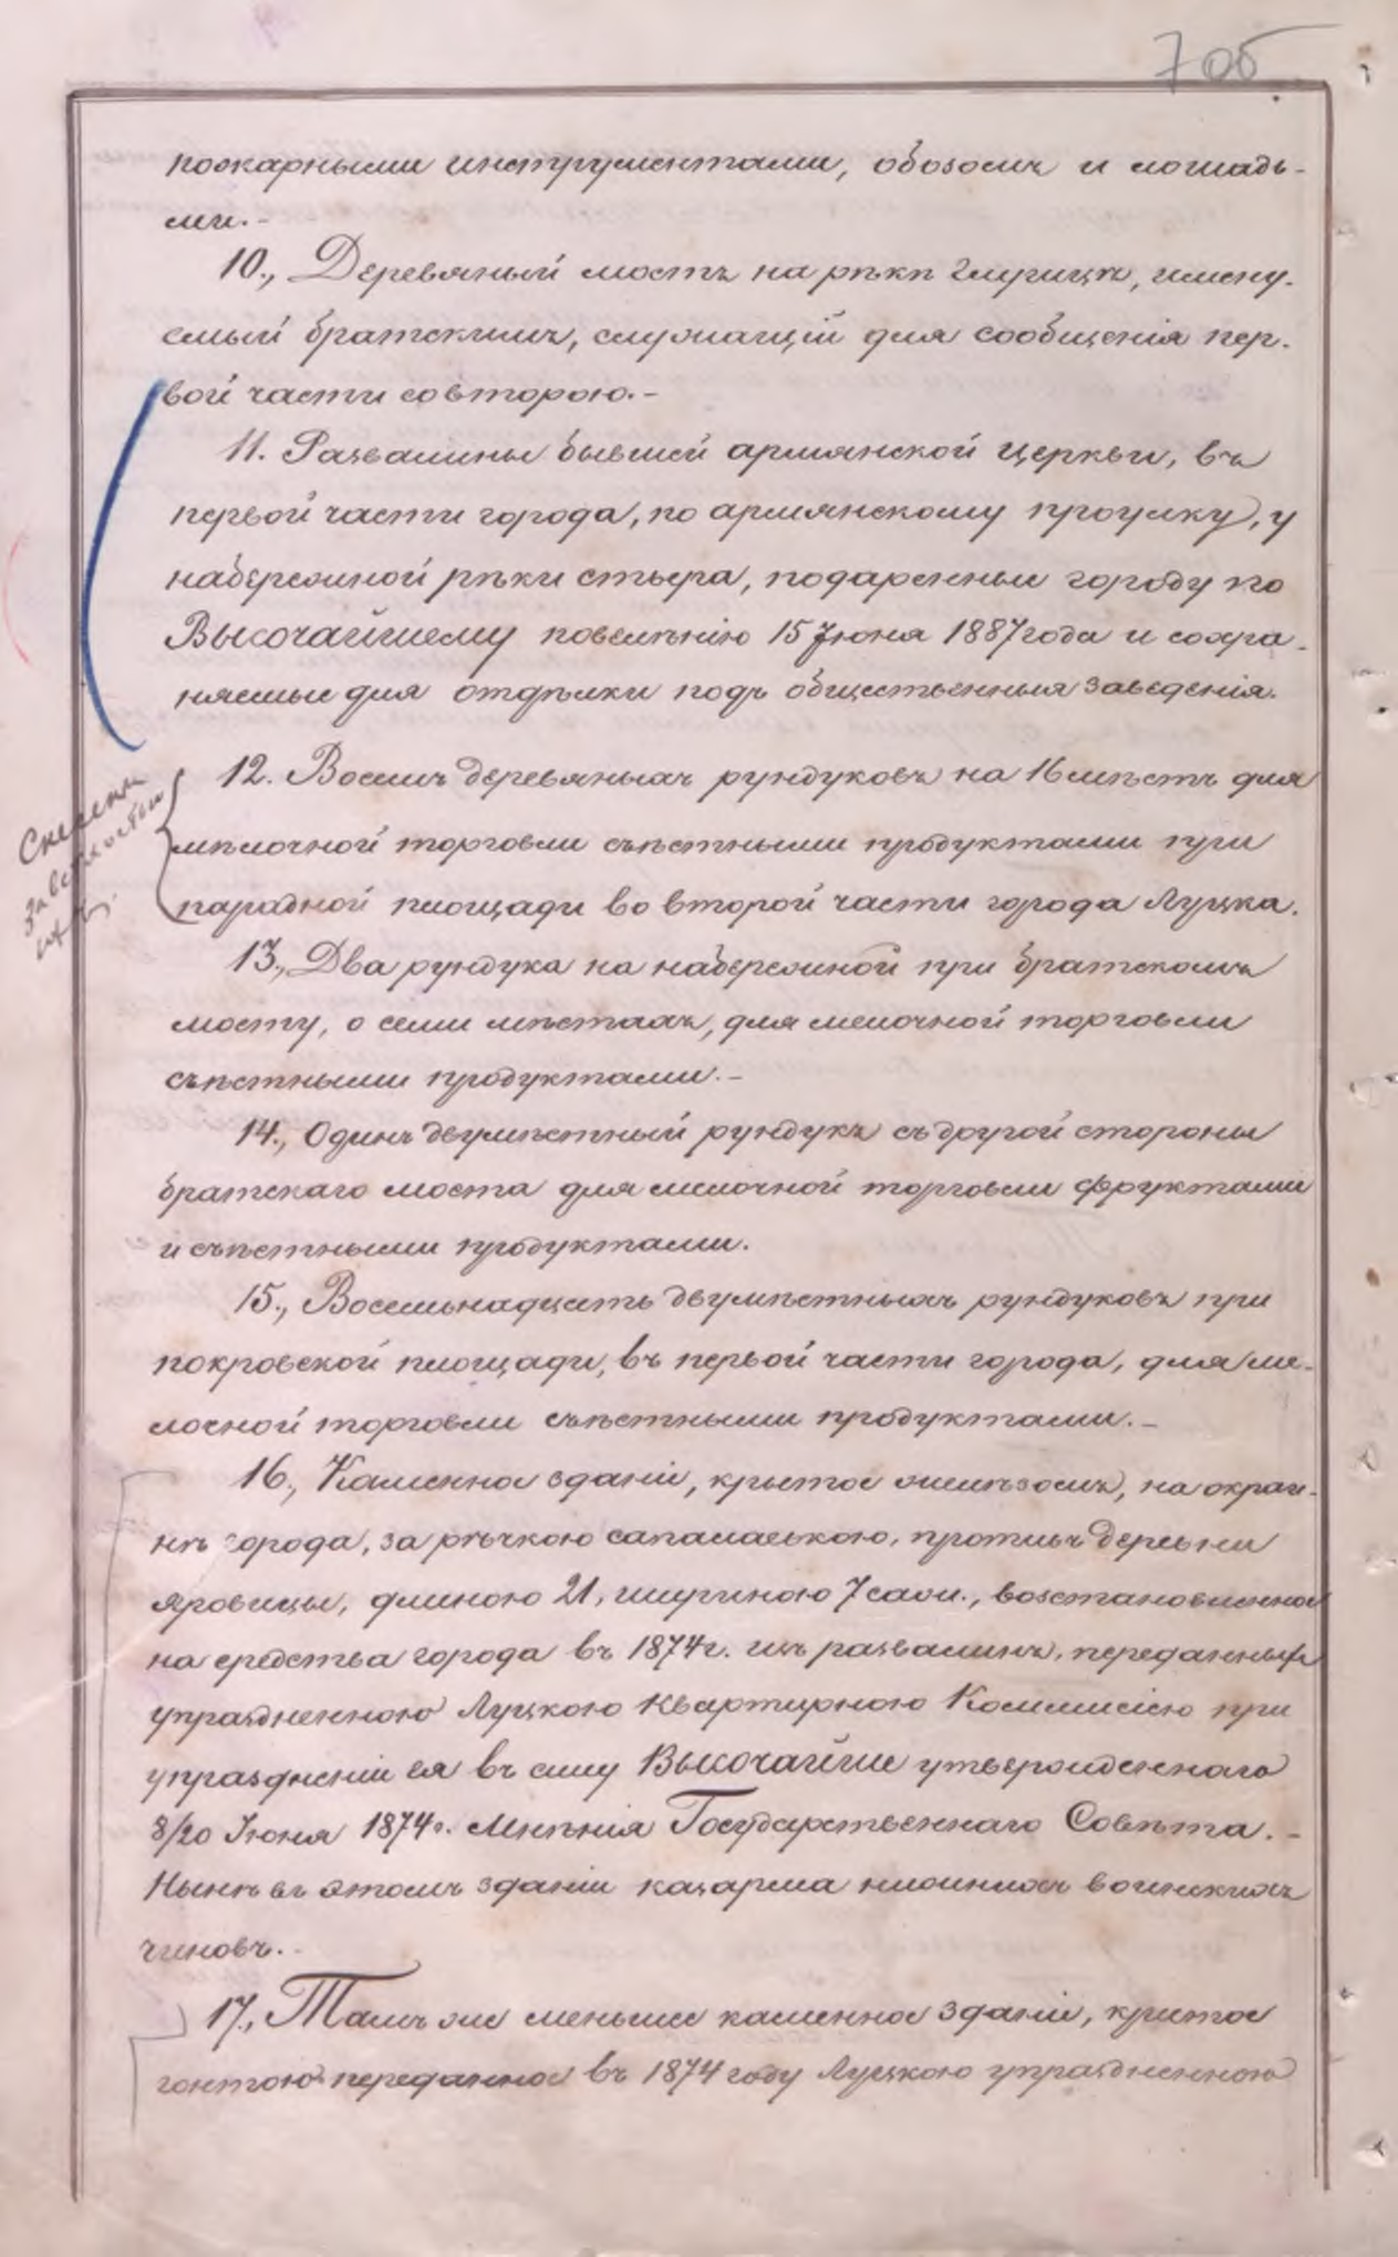 70об
пожарными инструментами, обозомъ и лошадь-
ми.-
10., Деревяный мостъ на рѣкѣ Глушцѣ, имену-
емый братскимъ, служащій для сообщенія пер-
вой части со второю.-
11. Развалины бывшей армянской церкви, въ
первой части города, по армянскому проулку, у
набережной рѣки стыра, подаренные городу по
Высочайшему повелѣнію 15 Іюня 1887 года и сохра-
няемые для отдѣлки подъ общественныя заведенія.
12. Восемь деревяныхъ рундуковъ на 16 мѣстъ для
мѣлочной торговли съѣстными продуктами при
парадной площади во второй части города Луцка.
13., Два рундука на набережной при братскомъ
мосту, о семи мѣстахъ, для мелочной торговли
съѣстными продуктами.-
14., Одинъ двумѣстный рундукъ съ другой стороны
братскаго моста для мелочной торговли фруктами
и съѣстными продуктами.
15., Восемьнадцать двумѣстныхъ рундуковъ при
покровской площади, въ первой части города, для ме-
лочной торговли съѣстными продуктами.-
16., Каменное зданіе, крытое желѣзомъ, на окраи-
нѣ города, за рѣчкою сапалаевкою, противъ деревни
яровицы, длиною 21, шириною 7 саж., возстановленное
на средства города въ 1874 г. изъ развалинъ, переданныхъ
упраздненною Луцкою Квартирною Коммисіею при
упраздненіи ея въ силу Высочайше утвержденнаго
8/20 Іюня 1874 г. Мнѣнія Государственнаго Совѣта.-
Нынѣ въ этомъ зданіи казарма нижнихъ воинскихъ
чиновъ.-
17., Тамъ же меньшее каменное зданіе, критое
гонтою переданное въ 1874 году Луцкою упраздненною